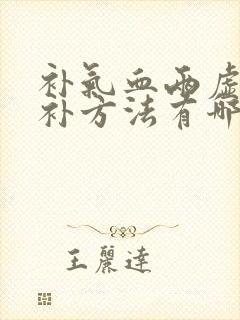 补氣血两虚
补方法有哪
王麗達